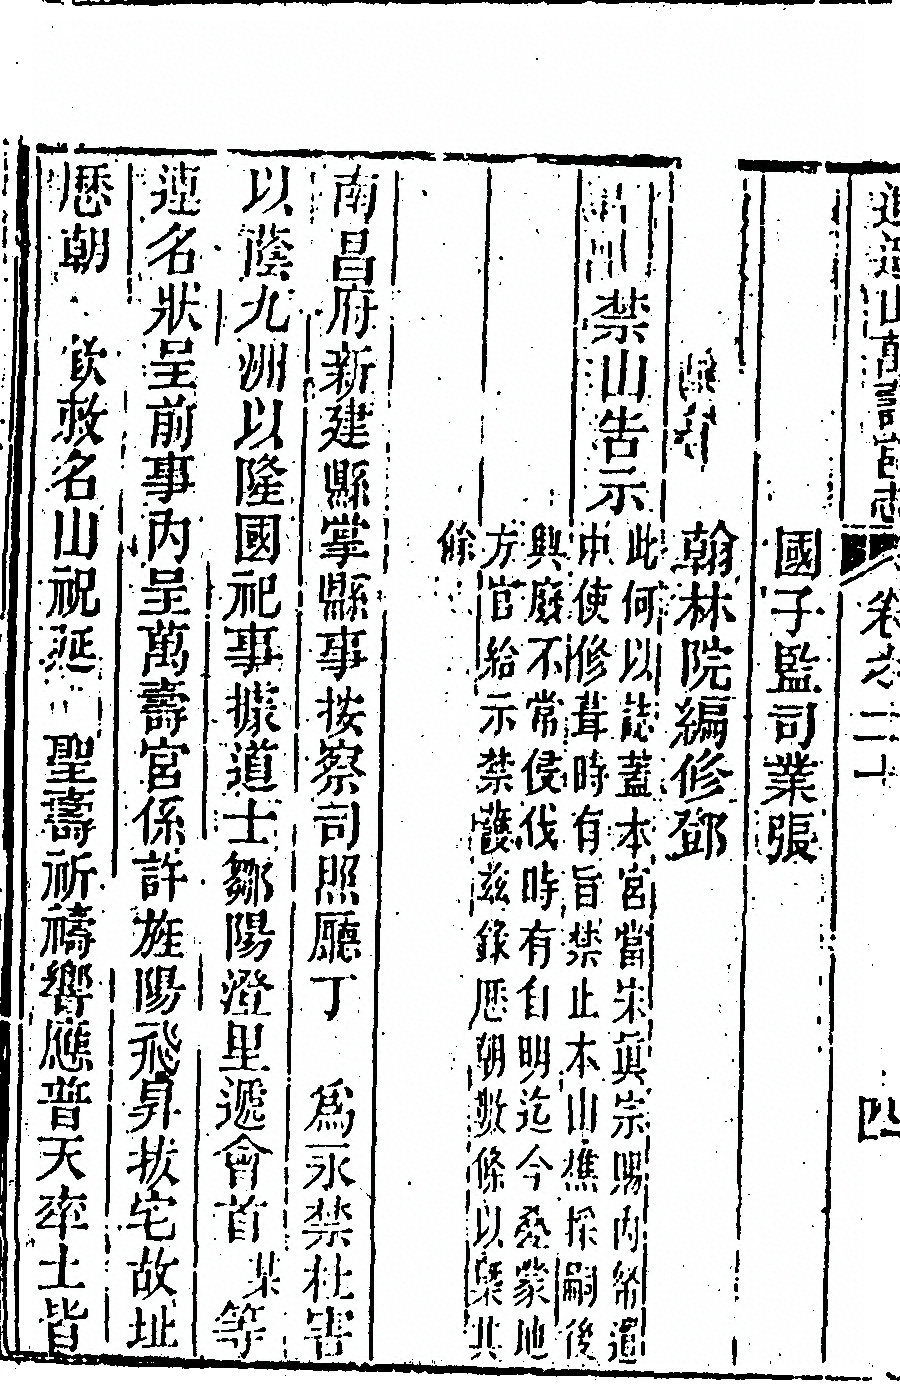 逍遙山萬壽宮志 卷之二十 四
國子監司業張
翰林院編修鄧
禁山告示
此何以誌蓋本宮當宋真宗賜內帑遣
中使修葺時有旨禁止本山樵採嗣後
興廢不常侵伐時有自明迄今叠蒙地
方官給示禁護茲錄歷朝數條以槩其
餘
南昌府新建縣掌縣事按察司照廳丁 為永禁杜害
以蔭九洲以隆國祀事據道士鄒陽澄里遞會首某等
連名狀呈前事內呈萬壽宮係許旌陽飛昇拔宅故址
歷朝 欽敕名山祝延 聖壽祈禱響應普天率土皆